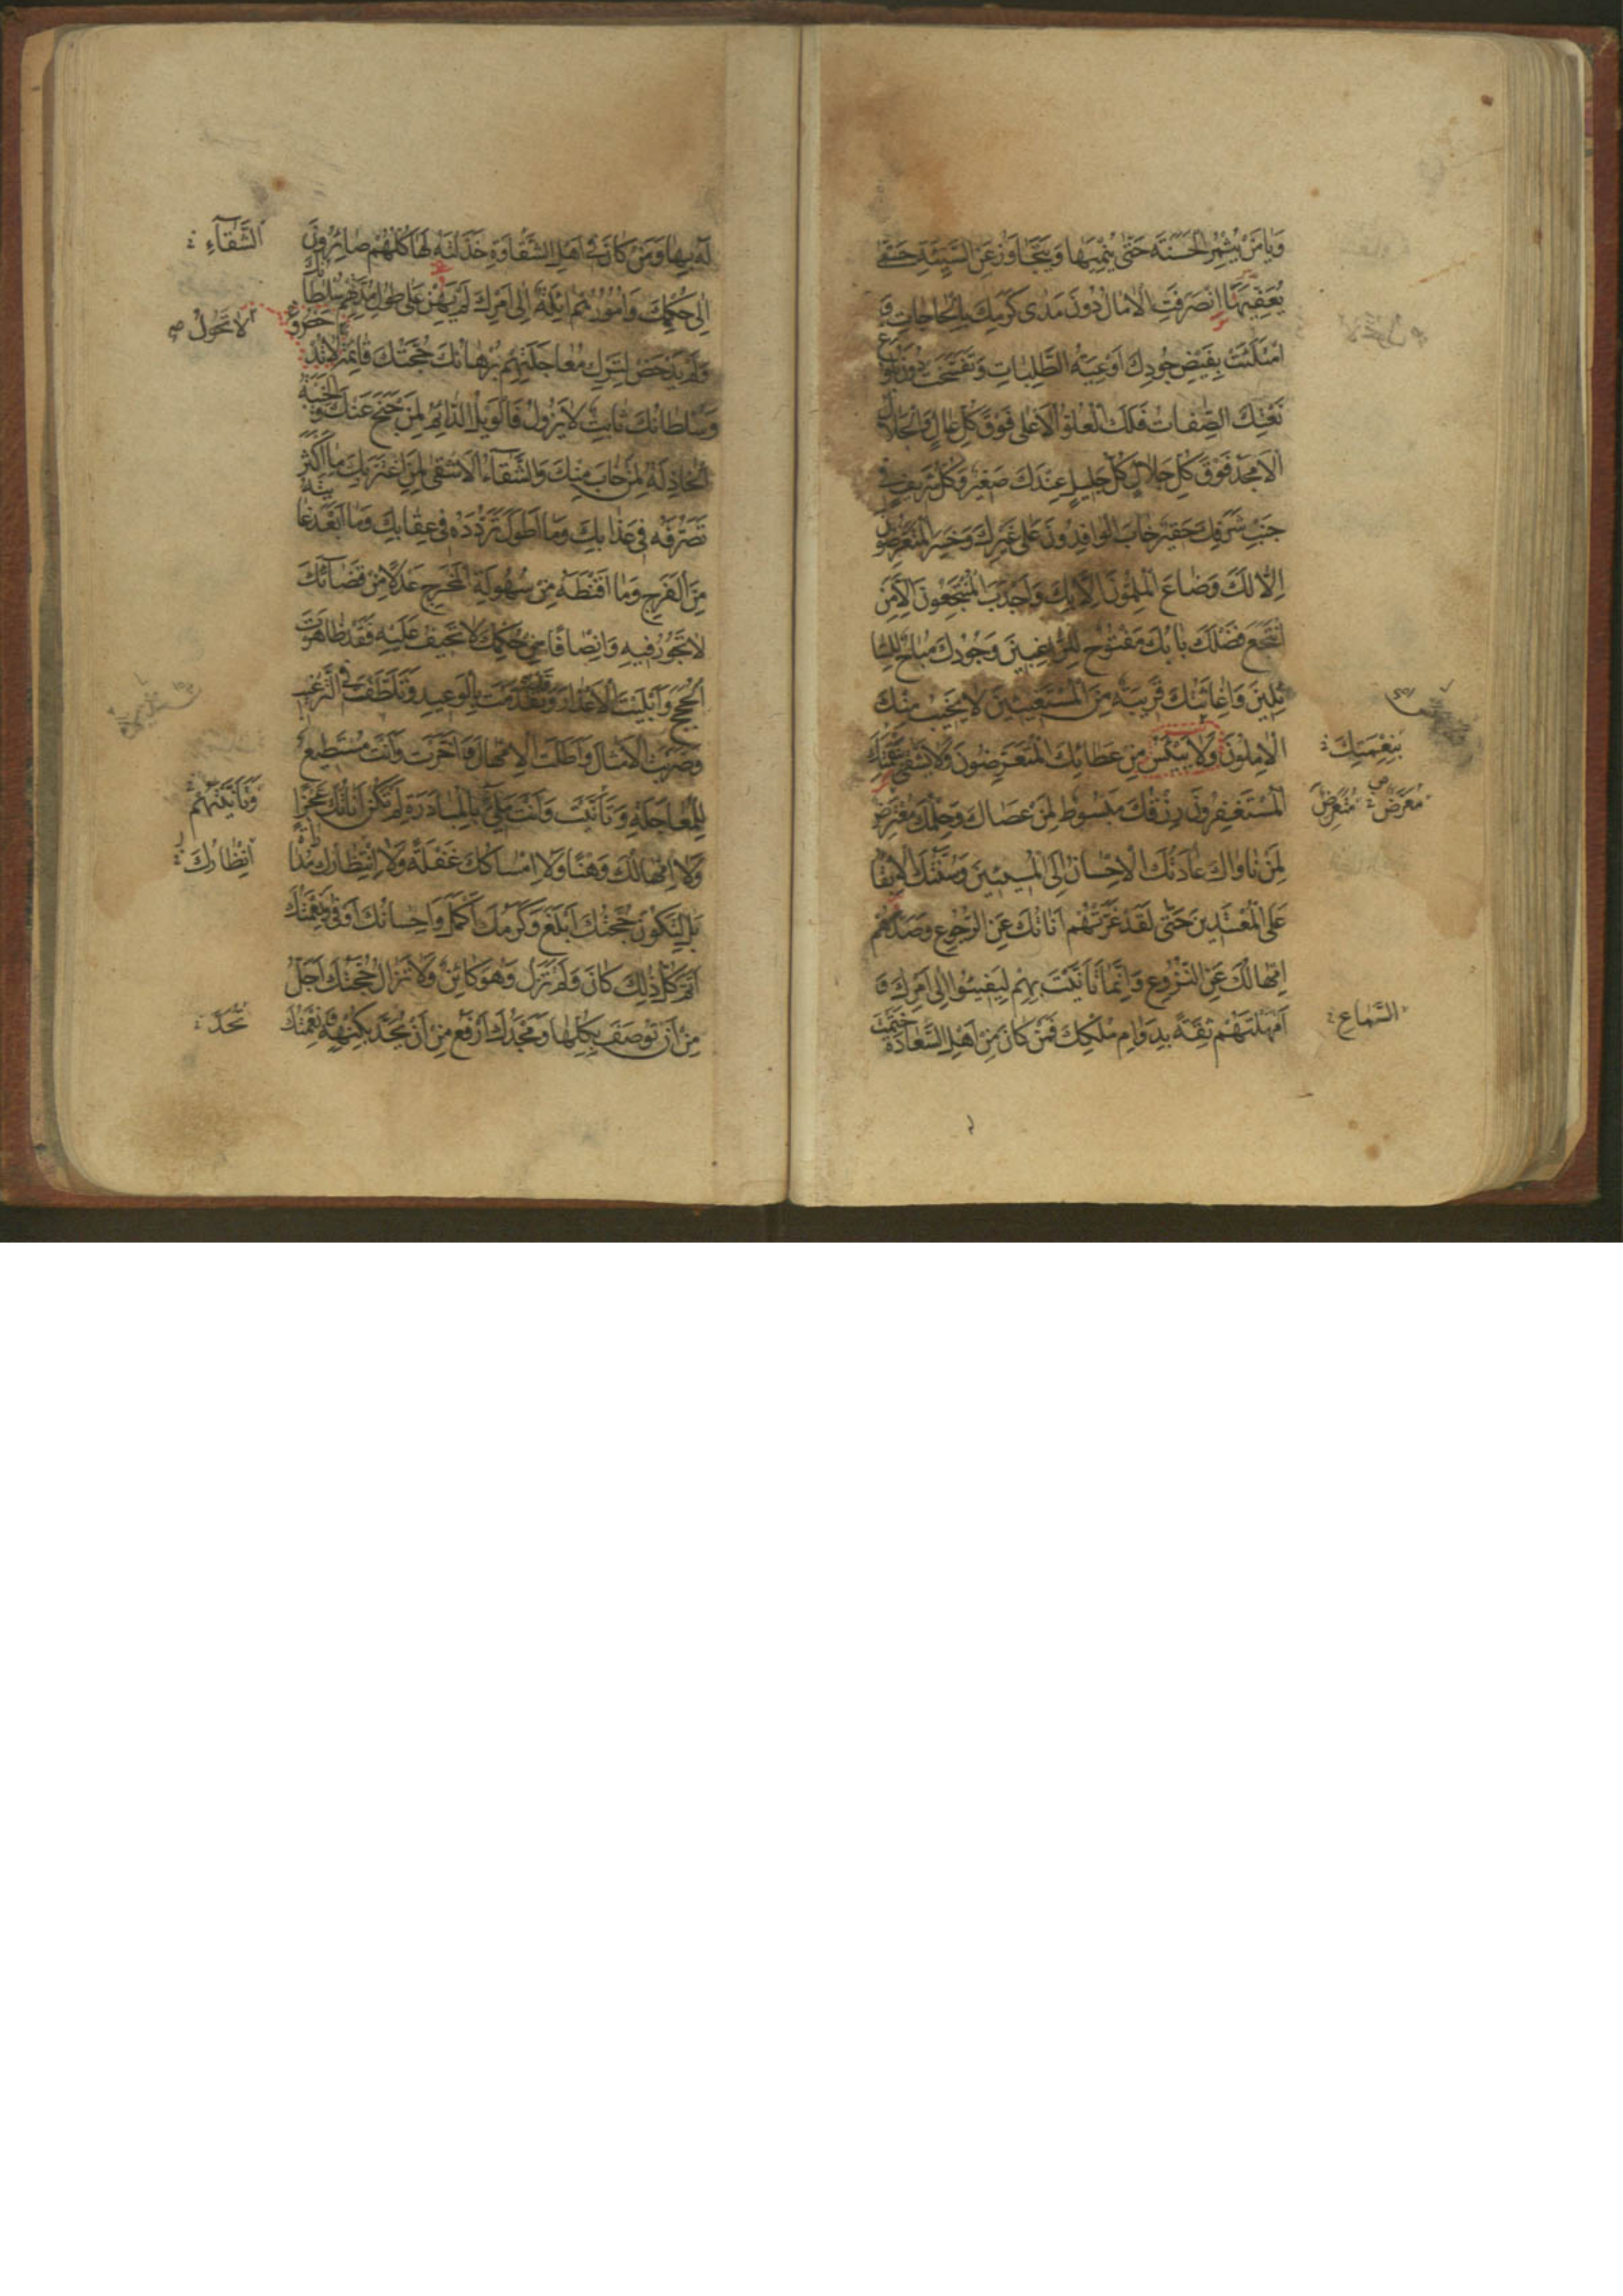 وَيَا مَنْ يُثْمِرُ الْحَسَنَةَ حَتَّى يُنْمِيَهَا وَيَتَجَاوَزُ عَنِ السَّيِّئَةِ حَتَّى
يُعَفِّيَهَا انْصَرَفَتِ الْآمَالُ دُونَ مَدَى كَرَمِكَ بِالْحَاجَاتِ وَ
امْتَلَئَتْ بِفَيْضِ جُودِكَ أَوْعِيَةُ الطَّلِبَاتِ وَتَفَسَّخَتْ دُونَ بُلُوغِ
نَعْتِكَ الصِّفَاتُ فَلَكَ الْعُلُوُّ الْأَعْلَى فَوْقَ كُلِّ عَالٍ وَالْجَلَالُ
الْأَمْجَدُ فَوْقَ كُلِّ جَلَالٍ كُلُّ جَلِيلٍ عِنْدَكَ صَغِيرٌ وَكُلُّ شَرِيفٍ فِي
جَنْبِ شَرَفِكَ حَقِيرٌ خَابَ الْوَافِدُونَ عَلَى غَيْرِكَ وَخَسِرَ الْمُتَعَرِّضُونَ
إِلَّا لَكَ وَضَاعَ الْمُلِمُّونَ إِلَّا بِكَ وَأَجْدَبَ الْمُنْتَجِعُونَ إِلَّا مَنِ
انْتَجَعَ فَضْلَكَ بَابُكَ مَفْتُوحٌ لِلرَّاغِبِينَ وَجُودُكَ مُبَاحٌ لِلسَّا
ئِلِينَ وَإِغَاثَتُكَ قَرِيبَةٌ مِنَ الْمُسْتَغِيثِينَ لَا يَخِيبُ مِنْكَ
الْآمِلُونَ وَلَا يَيْأَسُ مِنْ عَطَائِكَ الْمُتَعَرِّضُونَ وَلَا يَشْقَى بِنَقِمَتِكَ
بِنِعْمَتِكَ
الْمُسْتَغْفِرُونَ رِزْقُكَ مَبْسُوطٌ لِمَنْ عَصَاكَ وَحِلْمُكَ مُعْتَرِضٌ
مُعْرِضٌ مُتَعَرِّضٌ
لِمَنْ نَاوَاكَ عَادَتُكَ الْإِحْسَانُ إِلَى الْمُسِيئِينَ وَسُنَّتُكَ الْإِبْقَا
عَلَى الْمُعْتَدِينَ حَتَّى لَقَدْ غَرَّتْهُمْ أَنَاتُكَ عَنِ الرُّجُوعِ وَصَدَّهُمْ
إِمْهَالُكَ عَنِ النُّزُوعِ وَإِنَّمَا تَأَنَّيْتَ بِهِمْ لِيَفِيئُوا إِلَى أَمْرِكَ وَ
أَمْهَلْتَهُمْ ثِقَةً بِدَوَامِ مُلْكِكَ فَمَنْ كَانَ مِنْ أَهْلِ السَّعَادَةِ خَتَمْتَ
لَهُ بِهَا وَمَنْ كَانَ مِنْ أَهْلِ الشَّقَاوَةِ خَذَلْتَهُ لَهَا كُلُّهُمْ صَائِرُونَ
الشَّقَآءِ
إِلَى حُكْمِكَ وَأُمُورُهُمْ آئِلَةٌ إِلَى أَمْرِكَ لَمْ يَهِنْ عَلَى طُولِ مُدَّتِهِمْ سُلْطَانُكَ
لَا تَحُولُ
وَلَمْ يَدْحَضْ لِتَرْكِ مُعَاجَلَتِهِمْ بُرْهَانُكَ حُجَّتُكَ قَائِمَةٌ
وَسُلْطَانُكَ ثَابِتٌ لَا يَزُولُ فَالْوَيْلُ الدَّائِمُ لِمَنْ جَنَحَ عَنْكَ وَالْخَيْبَةُ
الْخَاذِلَةُ لِمَنْ خَابَ مِنْكَ وَالشَّقَآءُ الْأَشْقَى لِمَنِ اغْتَرَّ بِكَ مَا أَكْثَرَ
تَصَرُّفَهُ فِي عَذَابِكَ وَمَا أَطْوَلَ تَرَدُّدَهُ فِي عِقَابِكَ وَمَا أَبْعَدَ غَايَتَهُ
مِنَ الْفَرَجِ وَمَا أَقْنَطَهُ مِنْ سُهُولَةِ الْمَخْرَجِ عَدْلًا مِنْ قَضَآئِكَ
لَا تَجُورُ فِيهِ وَإِنْصَافًا مِنْ حُكْمِكَ لَا تَحِيفُ عَلَيْهِ فَقَدْ ظَاهَرْتَ
الْحُجَجَ وَأَبْلَيْتَ الْأَعْذَارَ وَقَدْ تَقَدَّمْتَ بِالْوَعِيدِ وَتَلَطَّفْتَ فِي التَّرْغِيبِ
وَضَرَبْتَ الْأَمْثَالَ وَأَطَلْتَ الْإِمْهَالَ وَأَخَّرْتَ وَأَنْتَ مُسْتَطِيعٌ
لِلْمُعَاجَلَةِ وَتَأَنَّيْتَ وَأَنْتَ مَلِيءٌ بِالْمُبَادَرَةِ لَمْ تَكُنْ أَنَاتُكَ عَجْزًا
وَلَا إِمْهَالُكَ وَهْنًا وَلَا إِمْسَاكُكَ غَفْلَةً وَلَا انْتِظَارُكَ مُدَارَاةً
إِنْظَارُكَ
بَلْ لِتَكُونَ حُجَّتُكَ أَبْلَغَ وَكَرَمُكَ أَكْمَلَ وَإِحْسَانُكَ أَوْفَى وَنِعْمَتُكَ
أَتَمَّ كُلُّ ذَلِكَ كَانَ وَلَمْ تَزَلْ وَهُوَ كَائِنٌ وَلَا تَزَالُ حُجَّتُكَ أَجَلُّ
مِنْ أَنْ تُوصَفَ بِكُلِّهَا وَمَجْدُكَ أَرْفَعُ مِنْ أَنْ يُحَدَّ بِكُنْهِهِ وَنِعْمَتُكَ
تُحَدَّ